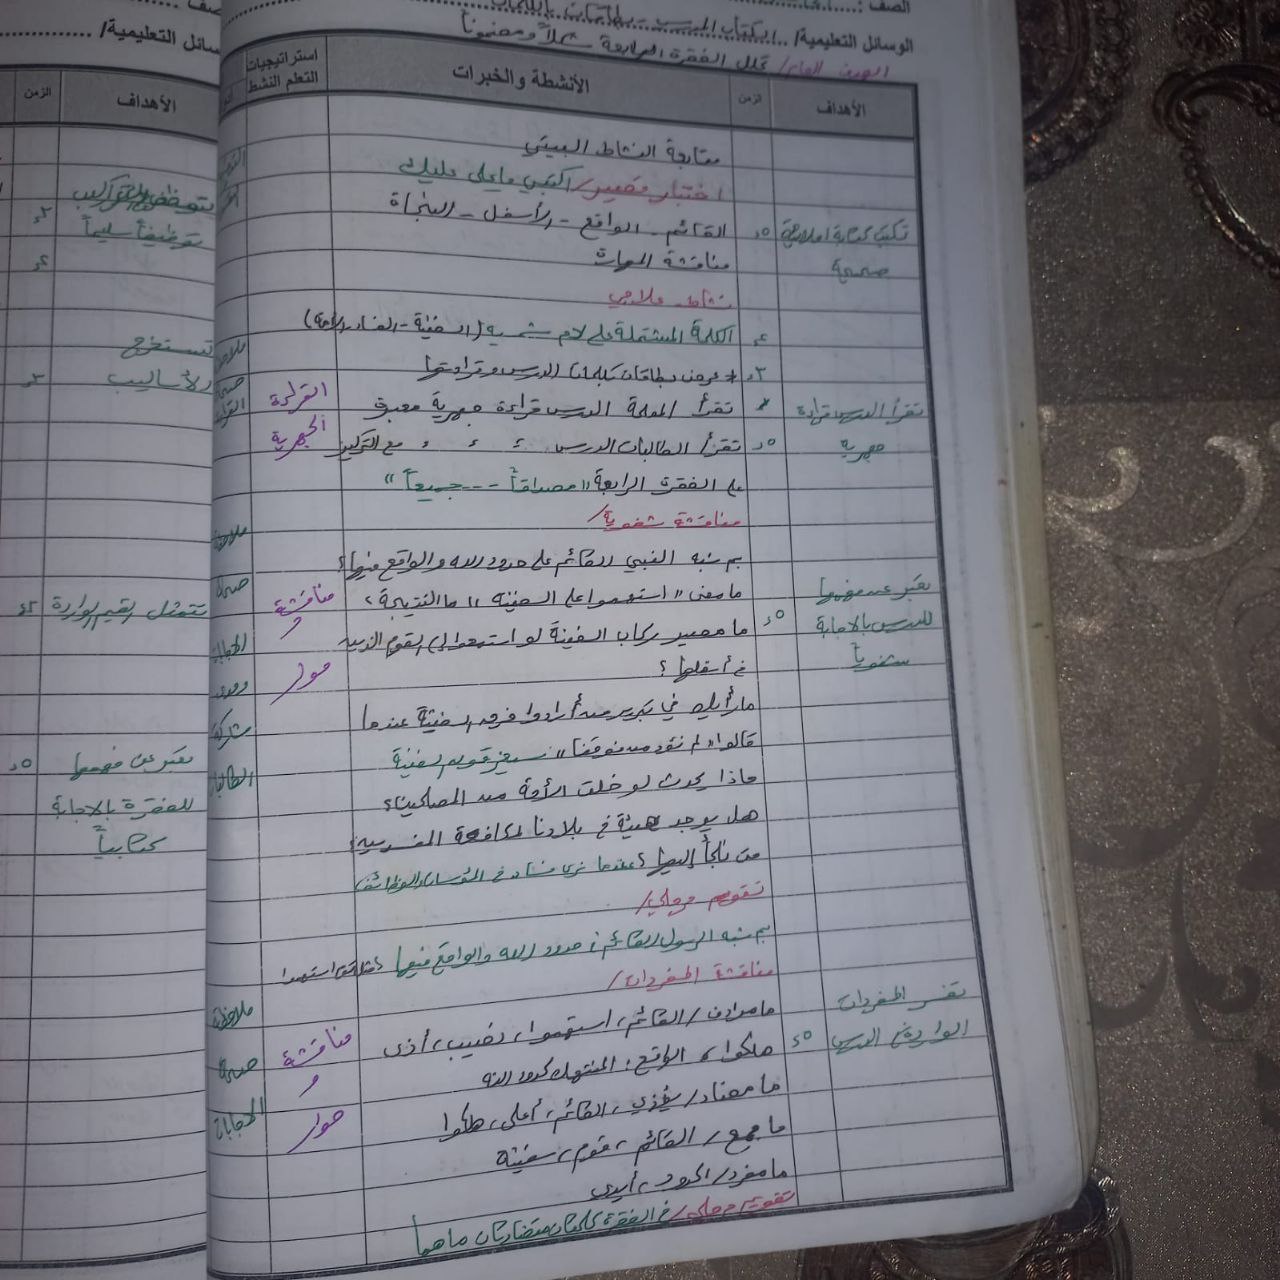 الصف :
الوسائل التعليمية/ الكتاب المدرسي - بطاقات بالكلمات
الهدف العام/ تحلل الفقرة الرابعة شكلاً ومضموناً
الأهداف
الزمن
الأنشطة والخبرات
استراتيجيات التعلم النشط
متابعة النشاط البيتي
اختبار قصير/ اكتبي ما يملى عليك
تكتب كتابة املائية صحيحة
٥د
القائم - الواقع - الأسفل - النجاة
مناقشة المهارة
نشاط علاجي
الكلمة المشتملة على لام شمسية (السفينة -
٣د
* عرض بطاقات كلمات الدرس وقراءتها
تقرأ الدرس قراءة جهرية
تقرأ المعلمة الدرس قراءة جهرية معبرة
القراءة الجهرية
٥د
تقرأ الطالبات الدرس ، ، ، مع التركيز
على الفقرة الرابعة "مصداقاً --- جميعاً"
مناقشة شفوية/
بم شبه النبي القائم على حدود الله والواقع فيها؟
تعبر عن فهمها للدرس بالاجابة شفوياً
٥د
ما معنى "استهموا على السفينة" ما النتيجة؟
مناقشة و حوار
ما مصير ركاب السفينة لو استمعوا إلى القوم الذين
في أسفلها؟
ما رأيك في تبرير من أرادوا خرق السفينة عندما
قالوا "لم نؤذ من فوقنا"
ماذا يحدث لو خلت الأمة من المصلحين؟
هل يوجد هيئة في بلادنا لمكافحة المفسدين؟
من نلجأ إليها؟ عندما نرى فساد في المؤسسات والوظائف
تقويم مرحلي/
بم شبه الرسول القائم في حدود الله والواقع فيها؟
مناقشة المفردات/
تفسر المفردات الواردة في الدرس
٥د
ما مرادف/ القائم، استهموا، نصيب، أذى
مناقشة و حوار
هلكوا، الواقع: المنتهك لحدود الله
ما مضاد/ يؤذي، القائم، أعلى، هلكوا
ما جمع/ القائم، قوم، سفينة
ما مفرد/ الحدود، أيدي
تقويم مرحلي/ في الفقرة كلمتان متضادتان ما هما
سائل التعليمية/
الأهداف
الزمن
توظف التراكيب
توظيفاً سليماً
تستخرج
الأساليب
٣د
تتمثل القيم الواردة
تعبر عن فهمها
٥د
للفقرة بالاجابة
كتابياً
ملاحظة
صحة
الاجابات
مشاركة
الطالبات
ملاحظة
صحة
الاجابات